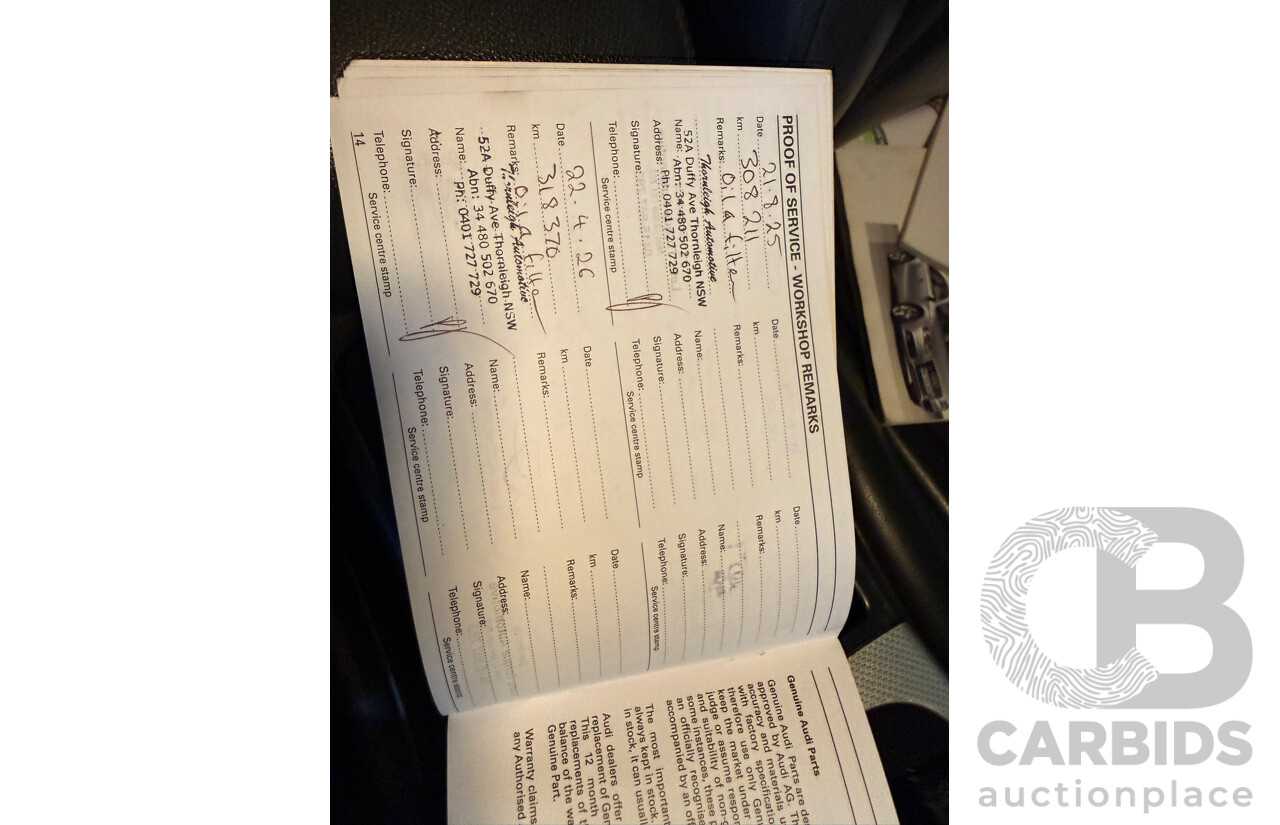 PROOF OF SERVICE - WORKSHOP REMARKS
Date 21.8.25
km 308 211
Remarks: Oil & filter
Thornleigh Automotive
52A Duffy Ave Thornleigh NSW
Name: Abn: 34 480 502 670
Address: Ph: 0401 727 729
Signature:
Telephone:
Service centre stamp
Date 22.4.26
km 318 370
Remarks: Oil & filter
Thornleigh Automotive
52A Duffy Ave Thornleigh NSW
Abn: 34 480 502 670
Name: Ph: 0401 727 729
Address:
Signature:
Telephone:
Service centre stamp
14
Date
km
Remarks:
Name:
Address:
Signature:
Telephone:
Service centre stamp
Date
km
Remarks:
Name:
Address:
Signature:
Telephone:
Service centre stamp
Date
km
Remarks:
Name:
Address:
Signature:
Telephone:
Service centre stamp
Date
km
Remarks:
Name:
Address:
Signature:
Telephone:
Service centre stamp
Genuine Audi Parts
Genuine Audi Parts are
approved by Audi AG.
accuracy and materials
with factory
therefore use only
keep the market under
judge or assume
and suitability of
some instances, these
an officially
accompanied by an
The most important
always kept in stock.
in stock, it can usually
Audi dealers offer
replacement of
This 12 month
replacements of
balance of the
Genuine Part.
Warranty claims
any Authorised
CARBIDS
auctionplace